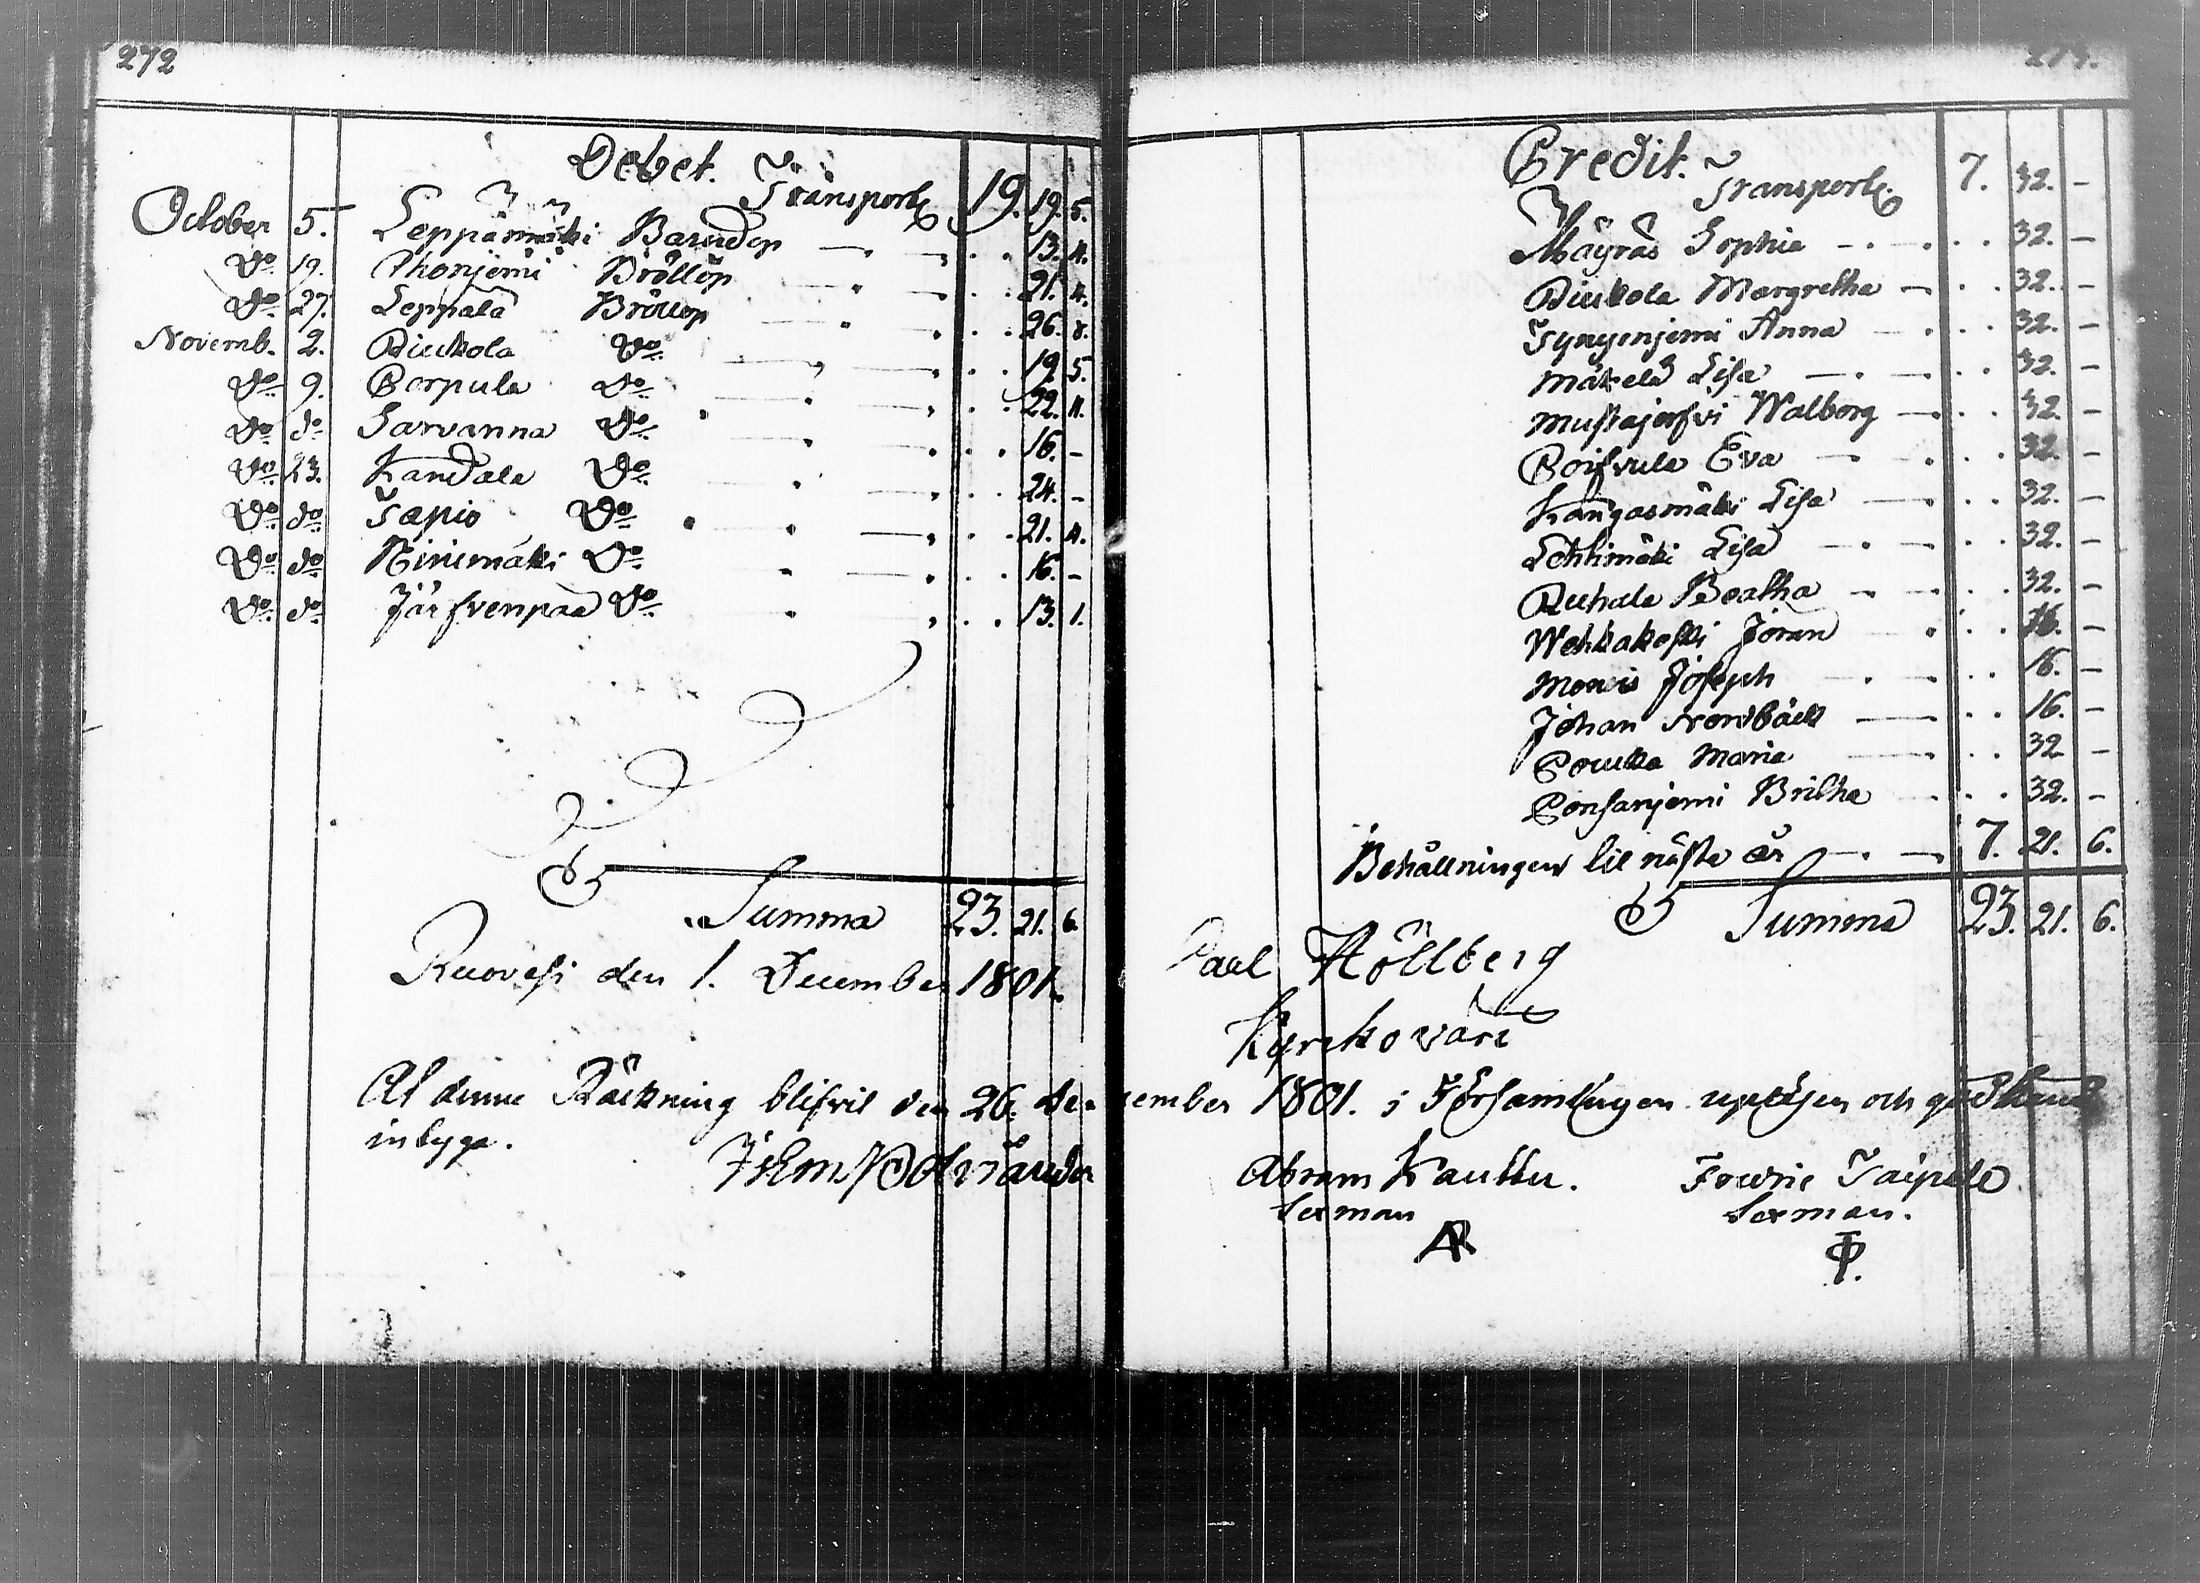 272
Debet.
Transport 19. 19. 5.
October 5. Leppämäki Barndop 13. 4.
Do 19. Ihonjemi Bröllop 21. 4.
Do 27. Leppälä Bröllop 26. 8.
Novemb. 2. Riukola Do 19. 5.
Do 9. Corpula Do 22. 4.
Do do Sarvanna Do 16. -
Do 23. Kandala Do 24. -
Do do Tapio Do 21. 4.
Do do Ninimäki Do 16. -
Do do Järfvenpää Do 13. 1.
Summa 23. 21. 6.
Ruovesi den 1. December 1801.
Credit.
Transport 7. 32. -
Mäyräs Sophia 32. -
Riukola Margretha 32. -
Anna 32. -
Mäkelä Lisa 32. -
Mustajerfvi Walborg 32. -
Eva 32. -
Kangasmäki Lisa 32. -
Lehtimäki Lisa 32. -
Ruhala Beatha 32. -
Wehkakoski Jöran 16. -
Joseph 16. -
Johan Nordbäck 16. -
Maria 32 -
Britha 32. -
Behållningen til nästa år 7. 21. 6.
Summa 23. 21. 6.
Paul Höllberg
Kyrkovärd
At denne Räckning blifvit den 26. december 1801. i Församlingen upläsen och godkänd
intyga.
Abram Kauttu. Taipale
Sexman Sexman.